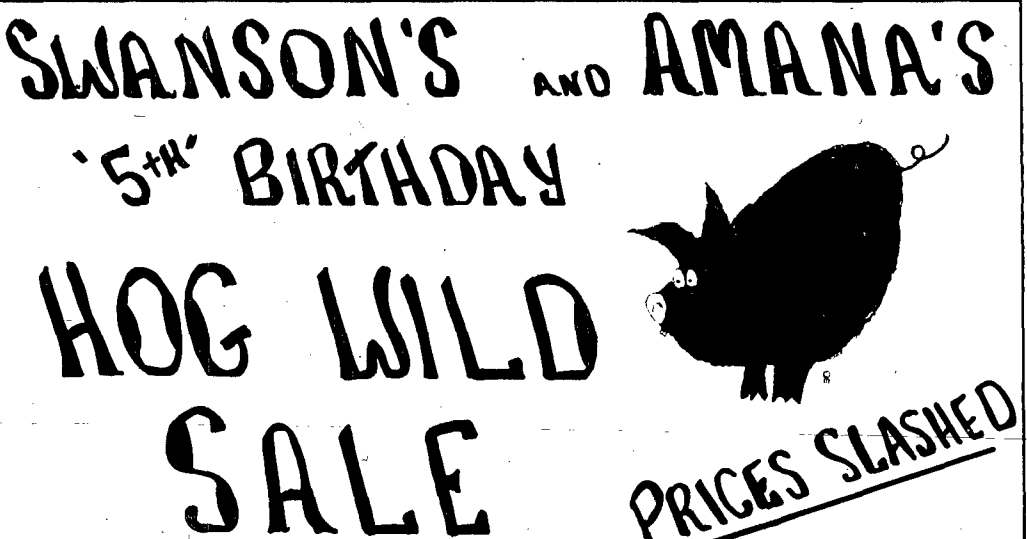 SWANSON'S AND AMANA'S
"5TH" BIRTHDAY
HOG WILD
SALE
PRICES SLASHED